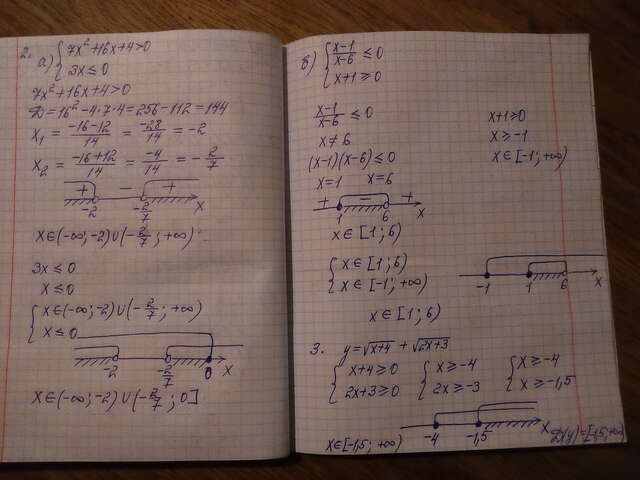 2. а) { 7x²+16x+4>0
3x≤0
7x²+16x+4>0
D=16²-4·7·4=256-112=144
x₁ = (-16-12)/14 = -28/14 = -2
x₂ = (-16+12)/14 = -4/14 = -2/7
+ - +
-2 -2/7 x
x∈(-∞;-2)∪(-2/7; +∞)
3x≤0
x≤0
{ x∈(-∞;-2)∪(-2/7; +∞)
x≤0
-2 -2/7 0 x
x∈(-∞;-2)∪(-2/7; 0]
б) { (x-1)/(x-6) ≤0
x+1≥0
(x-1)/(x-6) ≤0
x≠6
(x-1)(x-6)≤0
x=1 x=6
+ - +
1 6 x
x∈[1;6)
x+1≥0
x≥-1
x∈[-1;+∞)
{ x∈[1;6)
x∈[-1;+∞)
-1 1 6 x
x∈[1;6)
3. y=√(x+4) + √(2x+3)
{ x+4≥0 { x≥-4 { x≥-4
2x+3≥0 2x≥-3 x≥-1,5
-4 -1,5 x
x∈[-1,5; +∞) D(y)=[-1,5;+∞)